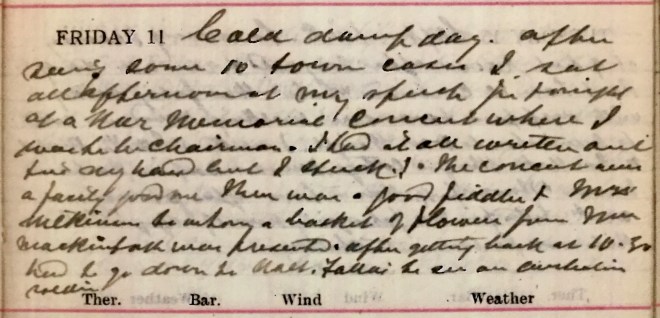 FRIDAY 11 Cold damp day. after
seeing some 10 town cases I sat
all afternoon at my speech for tonight
at a War Memorial Concert where I
was to be Chairman. I had it all written out
in my hand but I stuck! The concert was
a fairly good one There was a good fiddler & Mrs
to whom a basket of flowers from Mrs
Mackintosh was presented. after getting back at 10.30
had to go down to to see an
Ther. Bar. Wind Weather